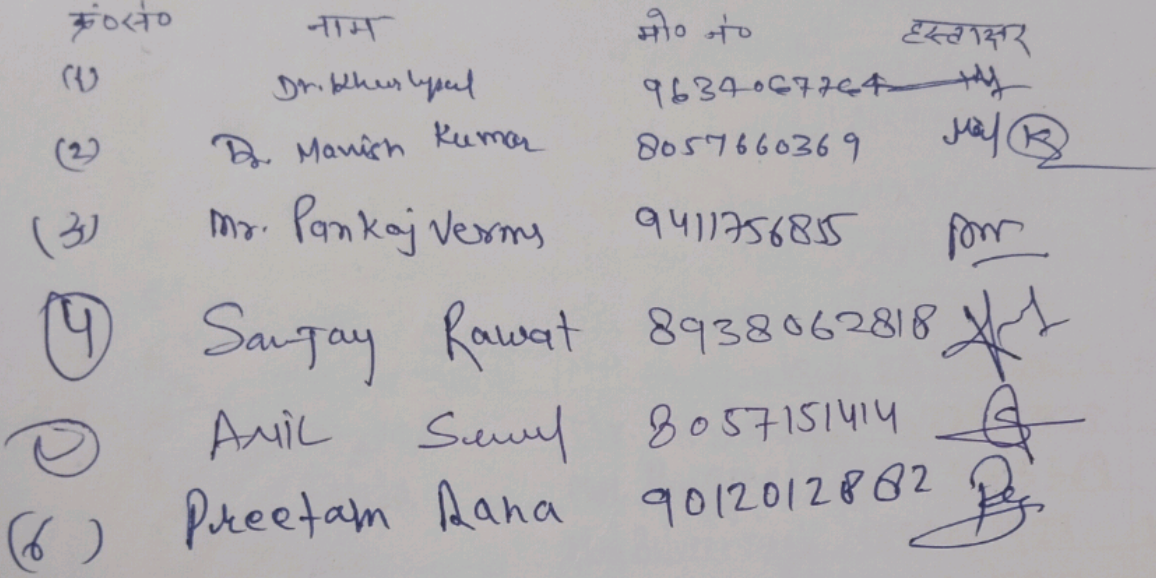 क्र०सं० नाम मो० नं० हस्ताक्षर
(1) Dr. Khushpal 9634067764
(2) Dr Manish Kumar 8057660369
(3) Mr. Pankaj Verma 9411756855
4 Sanjay Rawat 8938062818
ANIL 8057151414
(6) Preetam Rana 9012012882